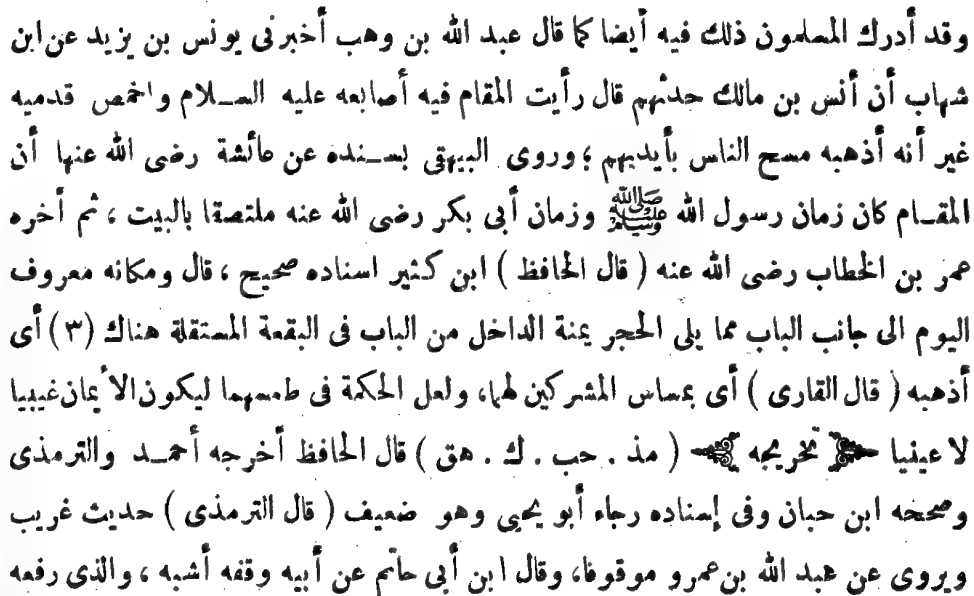 وقد أدرك المسلمون ذلك فيه أيضا كما قال عبد الله بن وهب أخبرنى يونس بن يزيد عن ابن
شهاب أن أنس بن مالك حدثهم قال رأيت المقام فيه أصابعه عليه السلام واخمص قدميه
غير أنه أذهبه مسح الناس بأيديهم ؛ وروى البيهقى بسنده عن عائشة رضى الله عنها أن
المقام كان زمان رسول الله ﷺ وزمان أبى بكر رضى الله عنه ملتصقا بالبيت ، ثم أخره
عمر بن الخطاب رضى الله عنه ( قال الحافظ ) ابن كثير اسناده صحيح ، قال ومكانه معروف
اليوم الى جانب الباب مما يلى الحجر يمنة الداخل من الباب فى البقعة المستقلة هناك (٣) أى
أذهبه ( قال القارى ) أى بمساس المشركين لهما، ولعل الحكمة فى طمسهما ليكون الأيمان غيبيا
لا عينيا تخريجه ( مذ . حب . ك . هق ) قال الحافظ أخرجه أحمد والترمذى
وصححه ابن حبان وفى إسناده رجاء أبو يحيى وهو ضعيف ( قال الترمذى ) حديث غريب
ويروى عن عبد الله بن عمرو موقوفا، وقال ابن أبى حاتم عن أبيه وقفه أشبه ، والذى رفعه